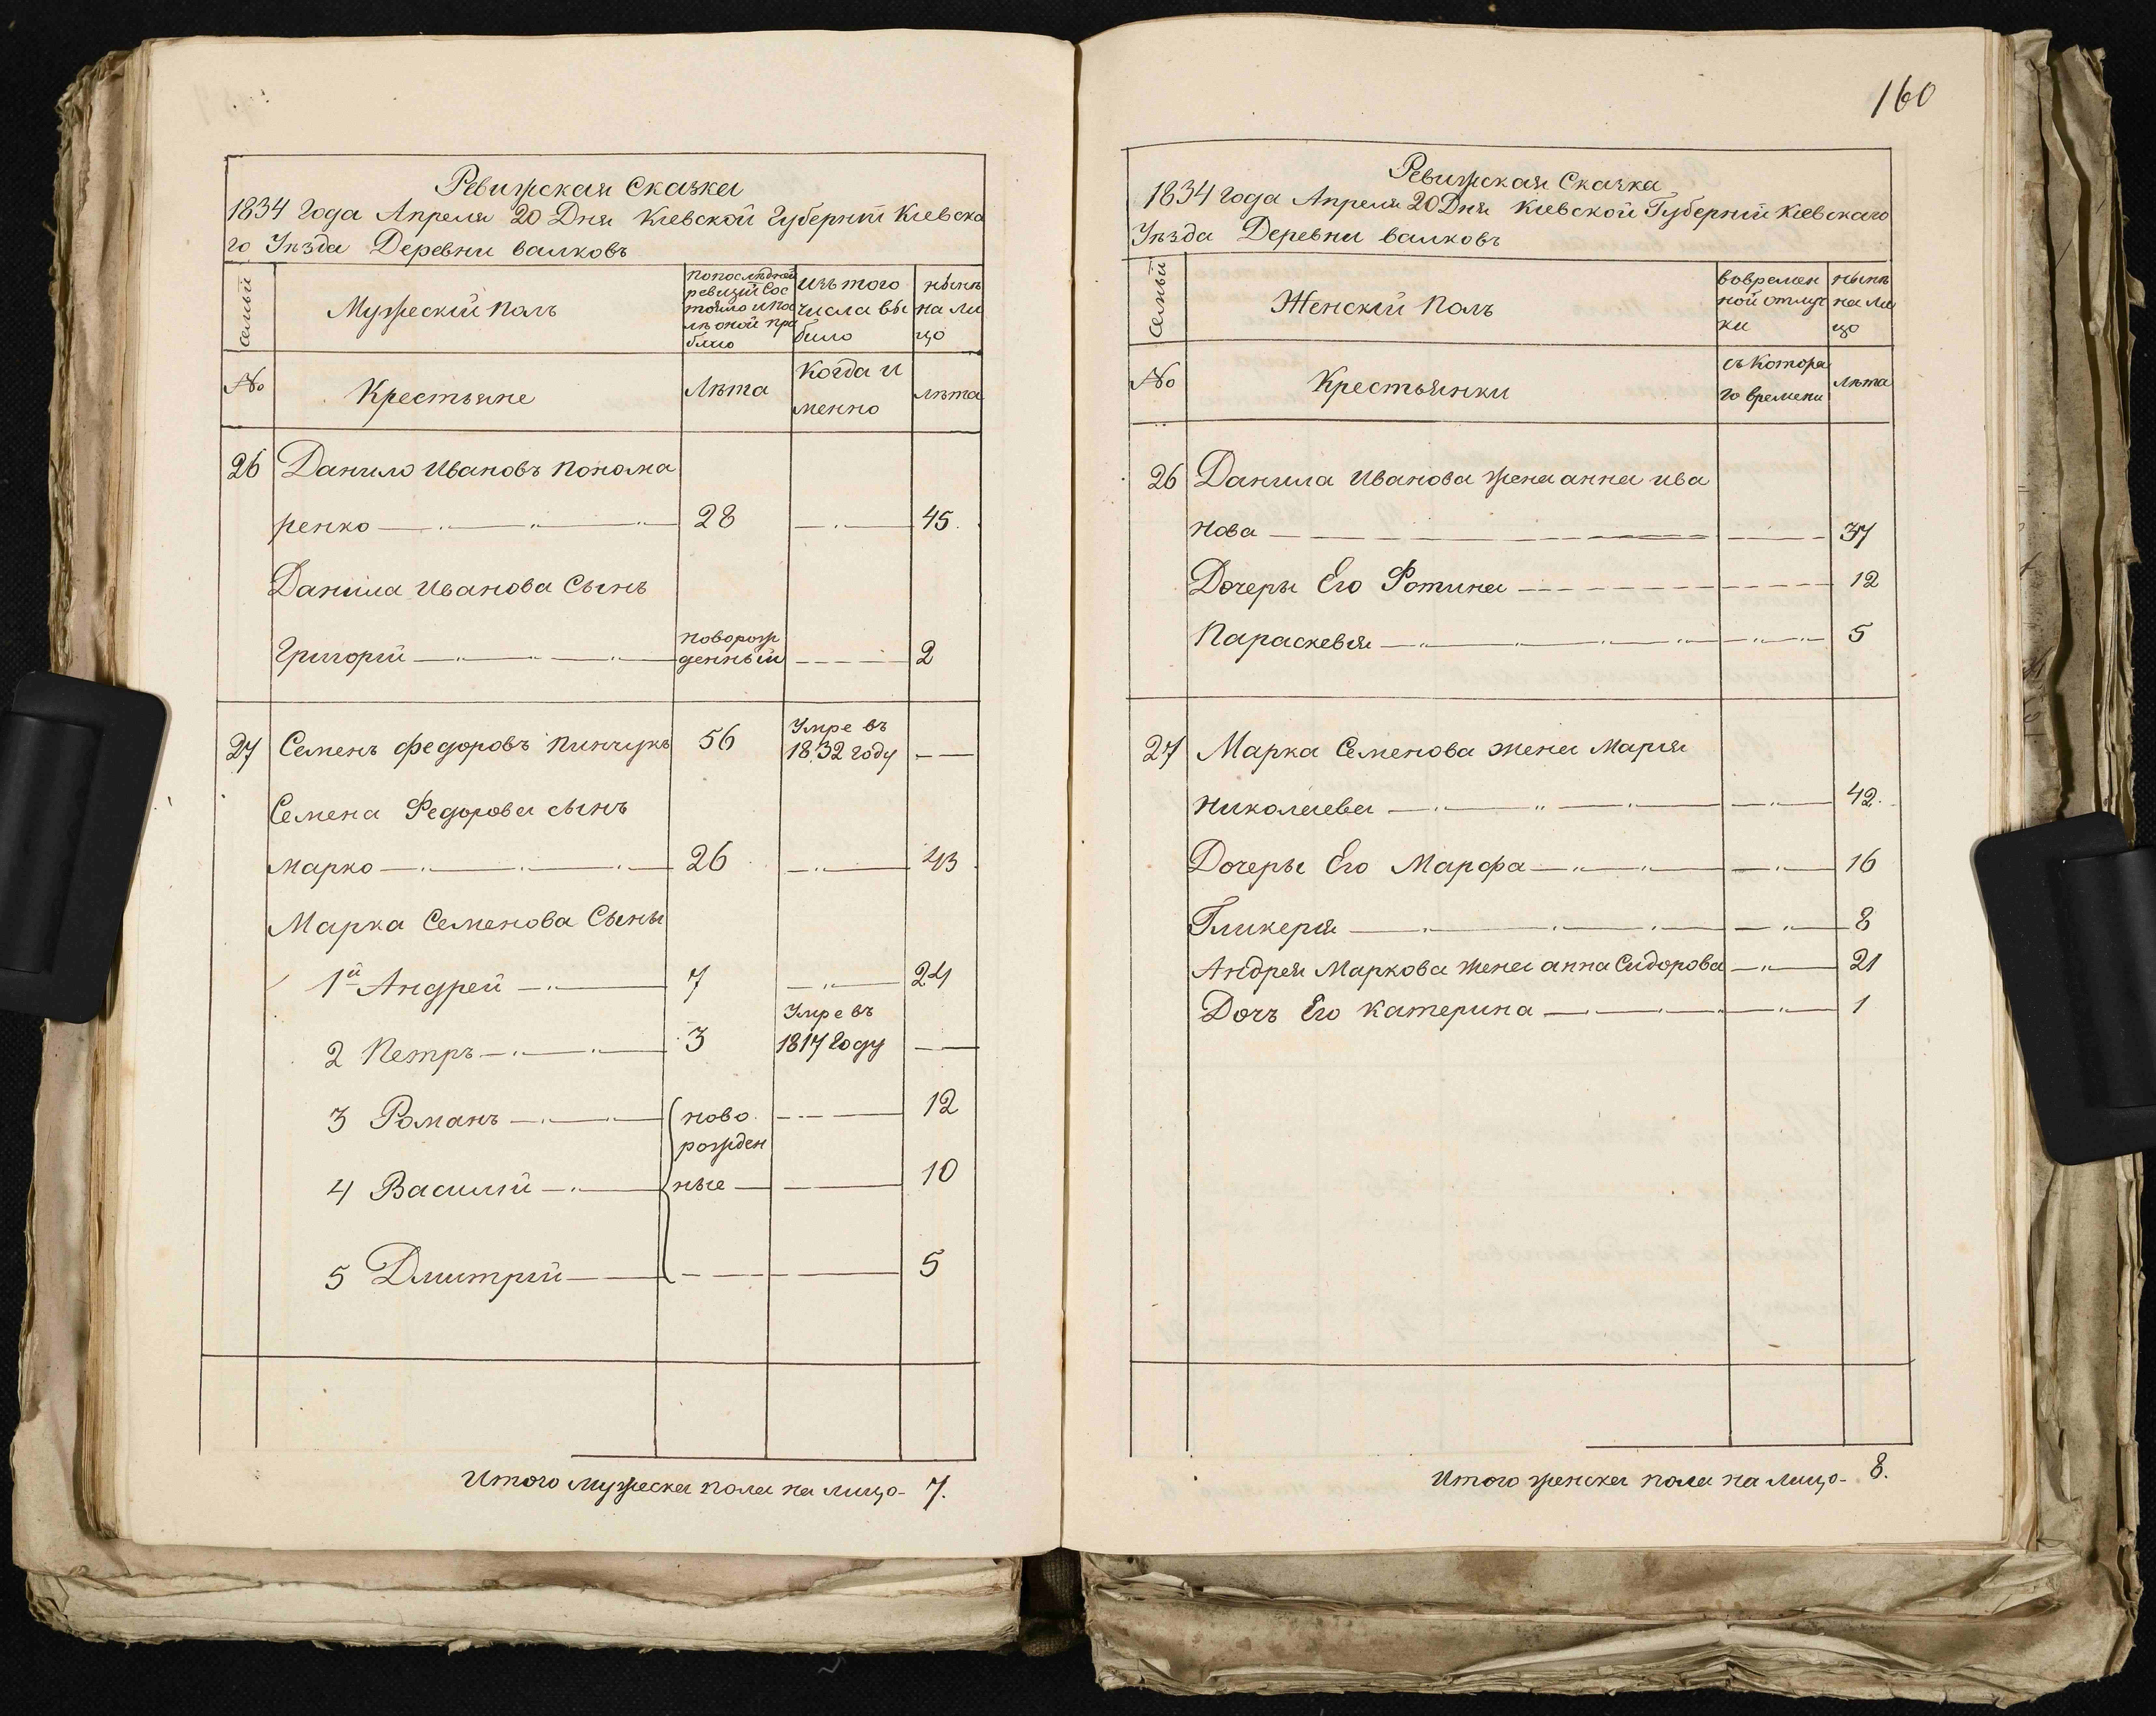 Ревижская Сказка
1834 года Апреля 20 Дня Кіевской Губерніи Кіевска
го Уѣзда Деревни валковъ
семьи
Мужескій полъ
попослѣдней
ревизіи сос
тояло и по
лѣ оной при
было
изъ того
числа вы
было
нынѣ
на ли
цо
№
Крестьяне
лѣта
когда и
менно
лѣта
26 Данило Ивановъ Понома
ренко 28 45.
Данила Иванова Сынъ
Григорій
новорож
денный
2
27 Семенъ Федоровъ Пинчукъ 56
Умре въ
1832 году
Семена Федорова сынъ
Марко 26 43
Марка Семенова Сыны
1й Андрей 7 24
2 Петръ 3
Умре въ
1817 году
3 Романъ ново 12
рожден
4 Василій ные 10
5 Дмитрій 5
Итого мужеска пола на лицо 7.
160
Ревижская Сказка
1834 года Апреля 20 Дня Кіевской Губерніи Кіевскаго
Уѣзда Деревни валковъ
семьи
Женскій Полъ
вовремен
ной отлуч
ки
нынѣ
на ли
цо
№
Крестьянки
съ котора
го времени
лѣта
26 Данила Иванова жена анна ива
нова 37
Дочеры Его Фотина 12
Параскевія 5
27 Марка Семенова жена Марія
николаева 42.
Дочеры Его Марфа 16
Гликерія 8
Андрея Маркова жена анна Сидорова 21
Дочъ Его Катерина 1
Итого женска пола на лицо 8.